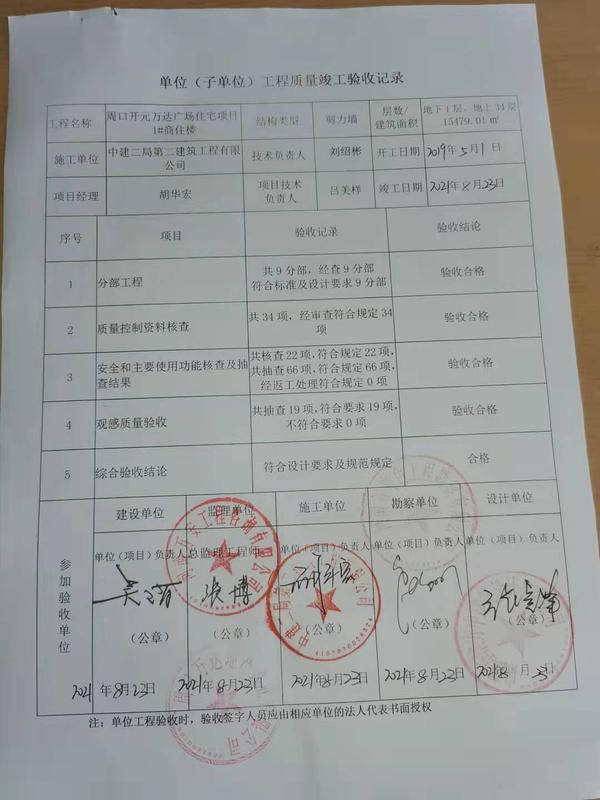 单位（子单位）工程质量竣工验收记录
工程名称
周口开元万达广场住宅项目
1#商住楼
结构类型
剪力墙
层数/
建筑面积
地下1层，地上34层
15479.01㎡
施工单位
中建二局第二建筑工程有限
公司
技术负责人
刘绍彬
开工日期
2019年5月1日
项目经理
胡华宏
项目技术
负责人
吕美样
竣工日期
2021年8月23日
序号
项目
验收记录
验收结论
1
分部工程
共9分部，经查9分部
符合标准及设计要求9分部
验收合格
2
质量控制资料核查
共34项，经审查符合规定34
项
验收合格
3
安全和主要使用功能核查及抽
查结果
共核查22项，符合规定22项，
共抽查66项，符合规定66项，
经返工处理符合规定0项
验收合格
4
观感质量验收
共抽查19项，符合要求19项，
不符合要求0项
验收合格
5
综合验收结论
符合设计要求及规范规定
合格
参加验收单位
建设单位
监理单位
施工单位
勘察单位
设计单位
单位（项目）负责人
总监理工程师
单位（项目）负责人
单位（项目）负责人
单位（项目）负责人
（公章）
（公章）
（公章）
（公章）
（公章）
2021年8月23日
2021年8月23日
2021年8月23日
2021年8月23日
2021年8月23日
注：单位工程验收时，验收签字人员应由相应单位的法人代表书面授权